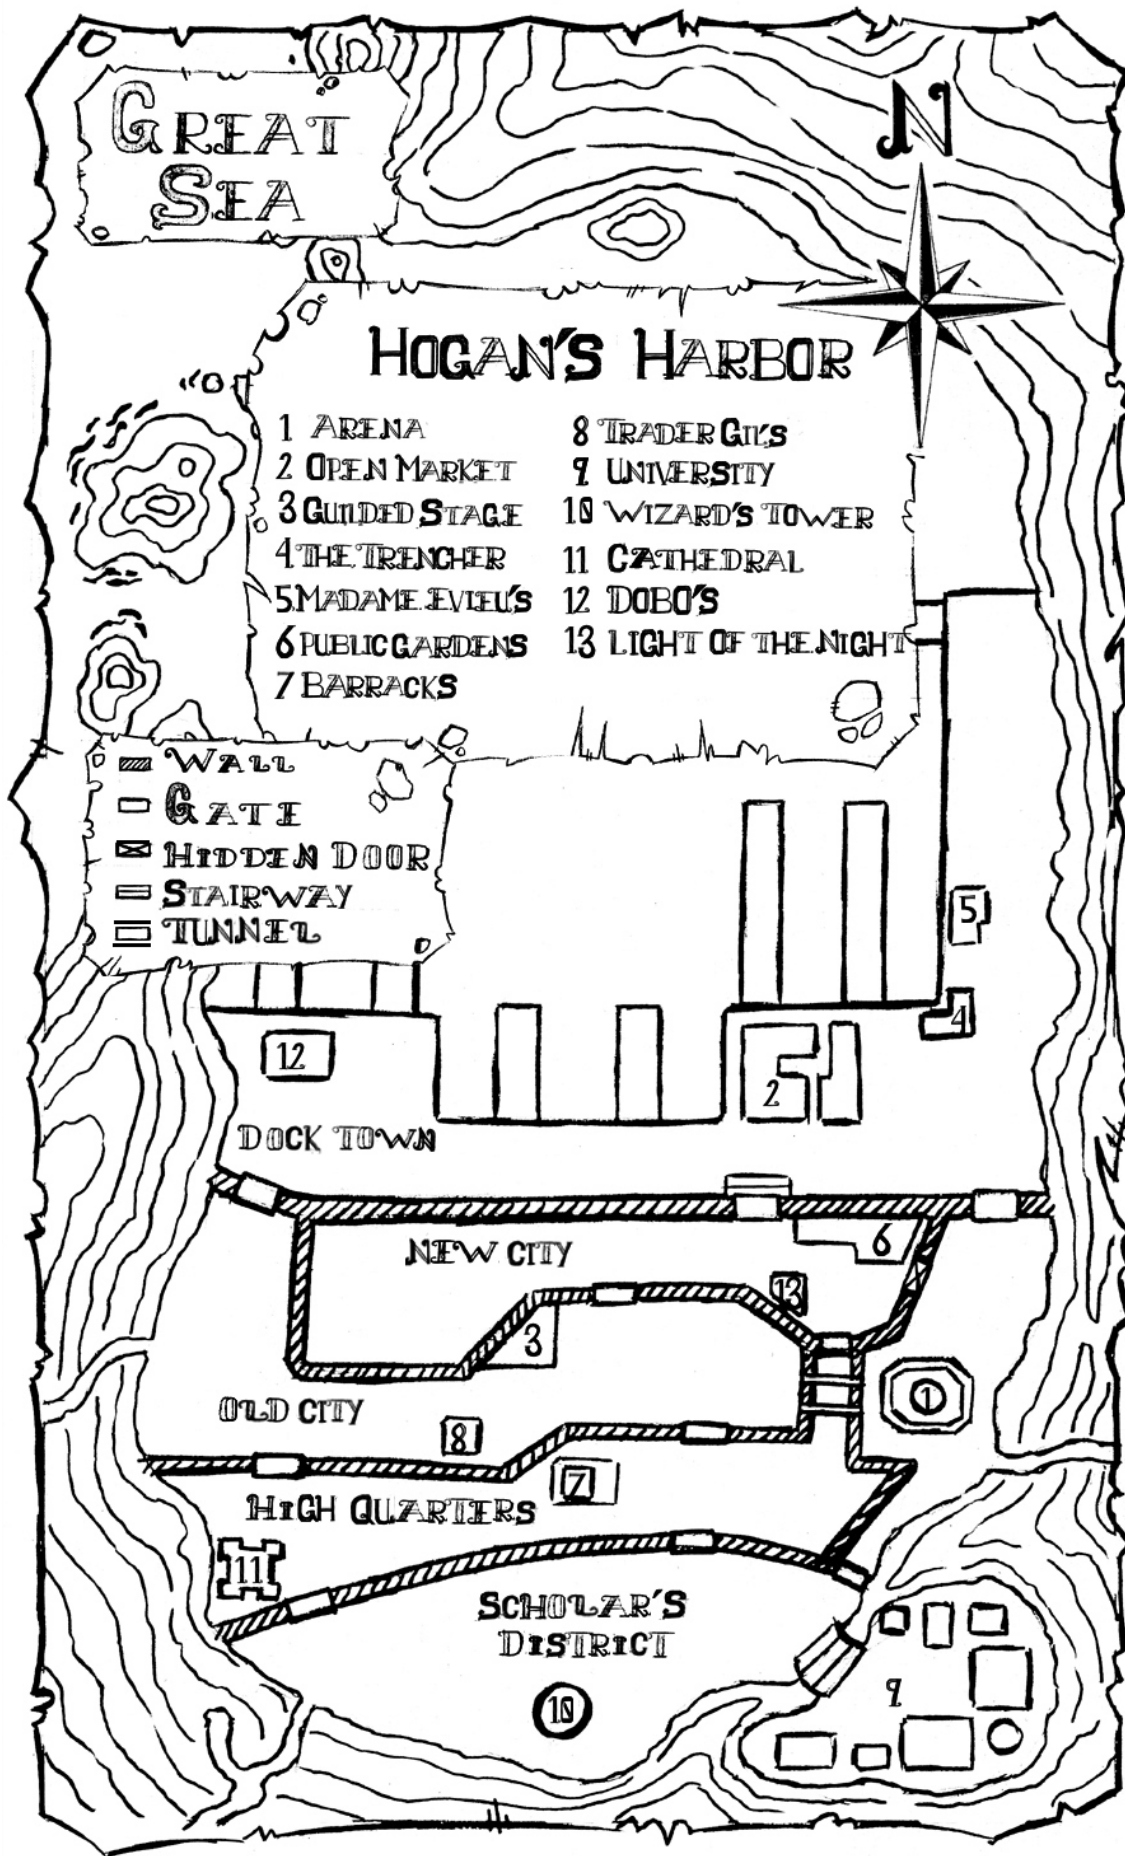 GREAT
SEA
N
HOGAN'S HARBOR
1 ARENA
2 OPEN MARKET
3 GUILDED STAGE
4 THE TRENCHER
5 MADAME EVIEU'S
6 PUBLIC GARDENS
7 BARRACKS
8 TRADER GIL'S
9 UNIVERSITY
10 WIZARD'S TOWER
11 CATHEDRAL
12 DOBO'S
13 LIGHT OF THE NIGHT
WALL
GATE
HIDDEN DOOR
STAIRWAY
TUNNEL
5
4
12
2
DOCK TOWN
NEW CITY
6
13
3
OLD CITY
1
8
7
HIGH QUARTERS
11
SCHOLAR'S
DISTRICT
9
10